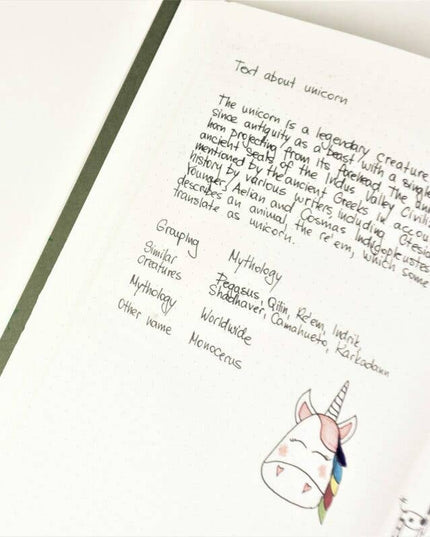 Text about unicorn
The unicorn is a legendary creature
since antiquity as a beast with a single
horn projecting from its forehead. The
ancient seals of the Indus Valley
mentioned by the ancient Greeks in
history by various writers, including
Younger, Aelian and Cosmas
describes an animal, the re'em, which some
translate as unicorn.
Grouping Mythology
Similar creatures Pegasus, Qilin, Re'em, Indrik,
Shadhavar, Camahueto, Karkadann
Mythology Worldwide
Other name Monocerus